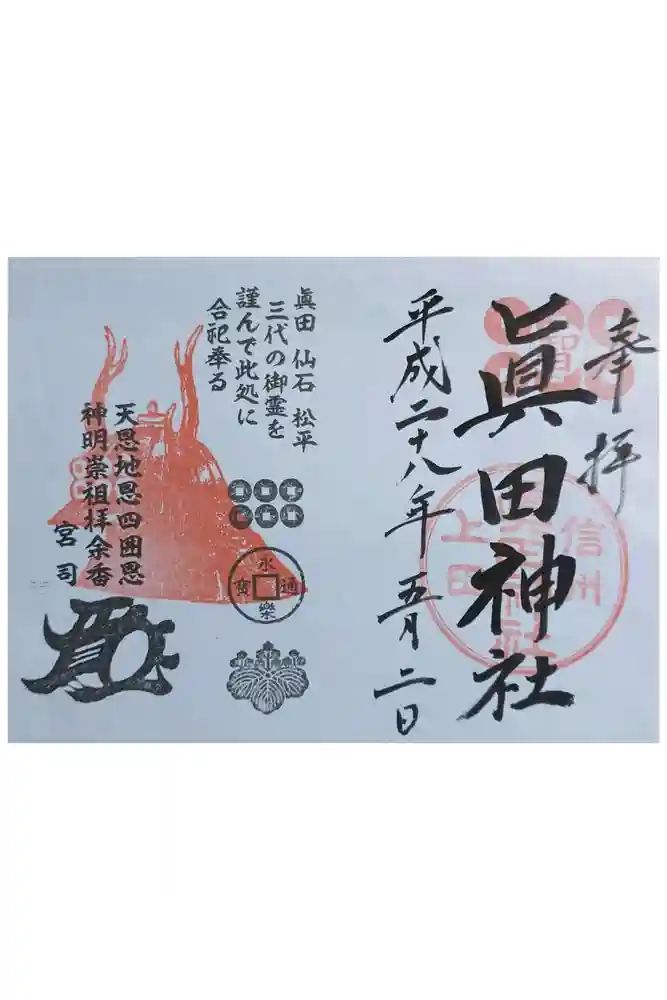 奉拝
眞田神社
智
信州
上田
平成二十八年五月二日
眞田 仙石 松平
三代の御霊を
謹んで此処に
合祀奉る
永樂通寶
天恩地恩四囲恩
神明崇祖拝余香
宮司